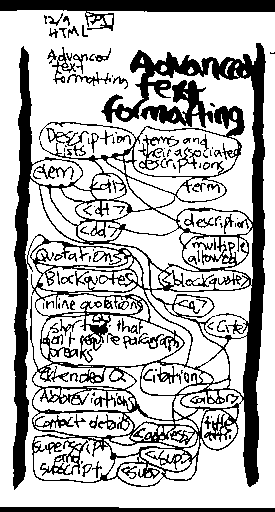 12/9
HTML
Advanced
text
formatting
Advanced
text
formatting
Description
Lists
terms and
their associated
descriptions
<dl>
term
<dt>
<dd>
description
(multiple
allowed
Quotations
Blockquotes
<blockquote>
inline quotations
<q>
short that
don't require paragraph
breaks
<cite>
Citations
Abbreviations
<abbr>
title
attri
Contact details
<address>
superscript
and
subscript
<sup>
<sub>